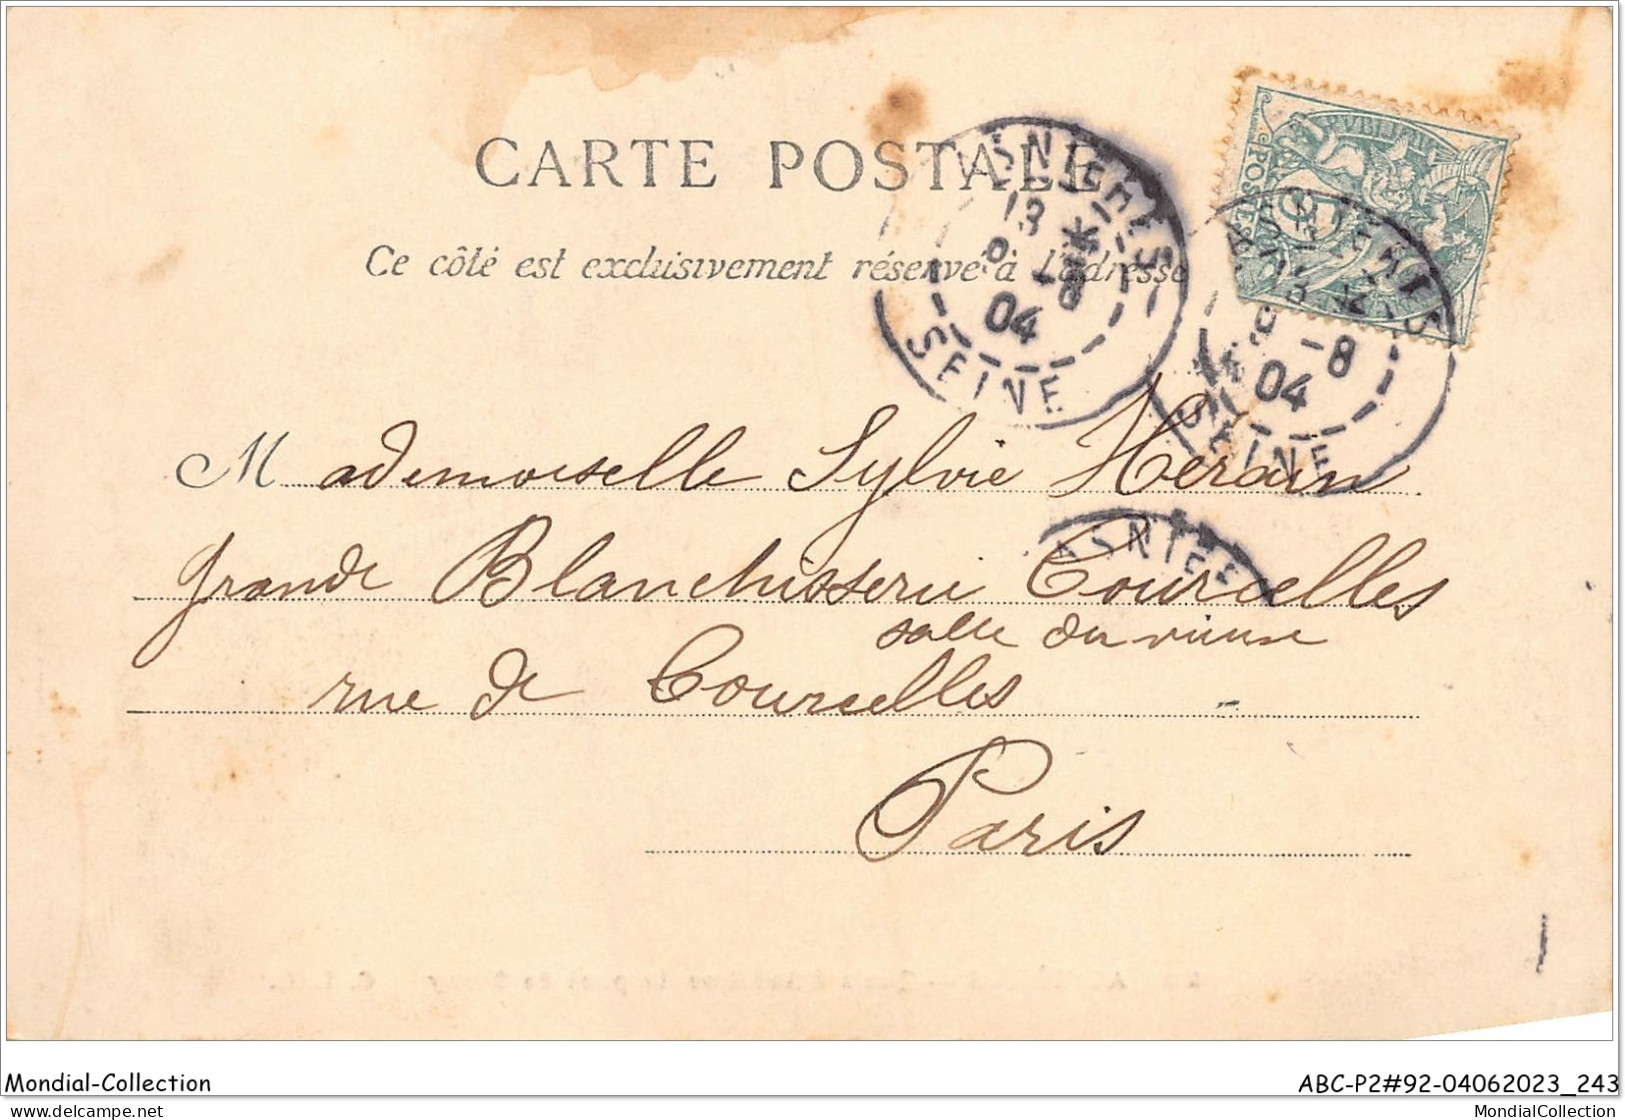 CARTE POSTALE
Ce côté est exclusivement réservé à l'adresse
RÉPUBLIQUE
POSTES
5
ASNIERES
13
8
04
SEINE
ASNIERES
13
-8
04
SEINE
ASNIERES
Mademoiselle Sylvie Herain
grande Blanchisserie Courcelles
rue de Courcelles
Paris
Mondial-Collection
ABC-P2#92-04062023_243
www.delcampe.net
MondialCollection